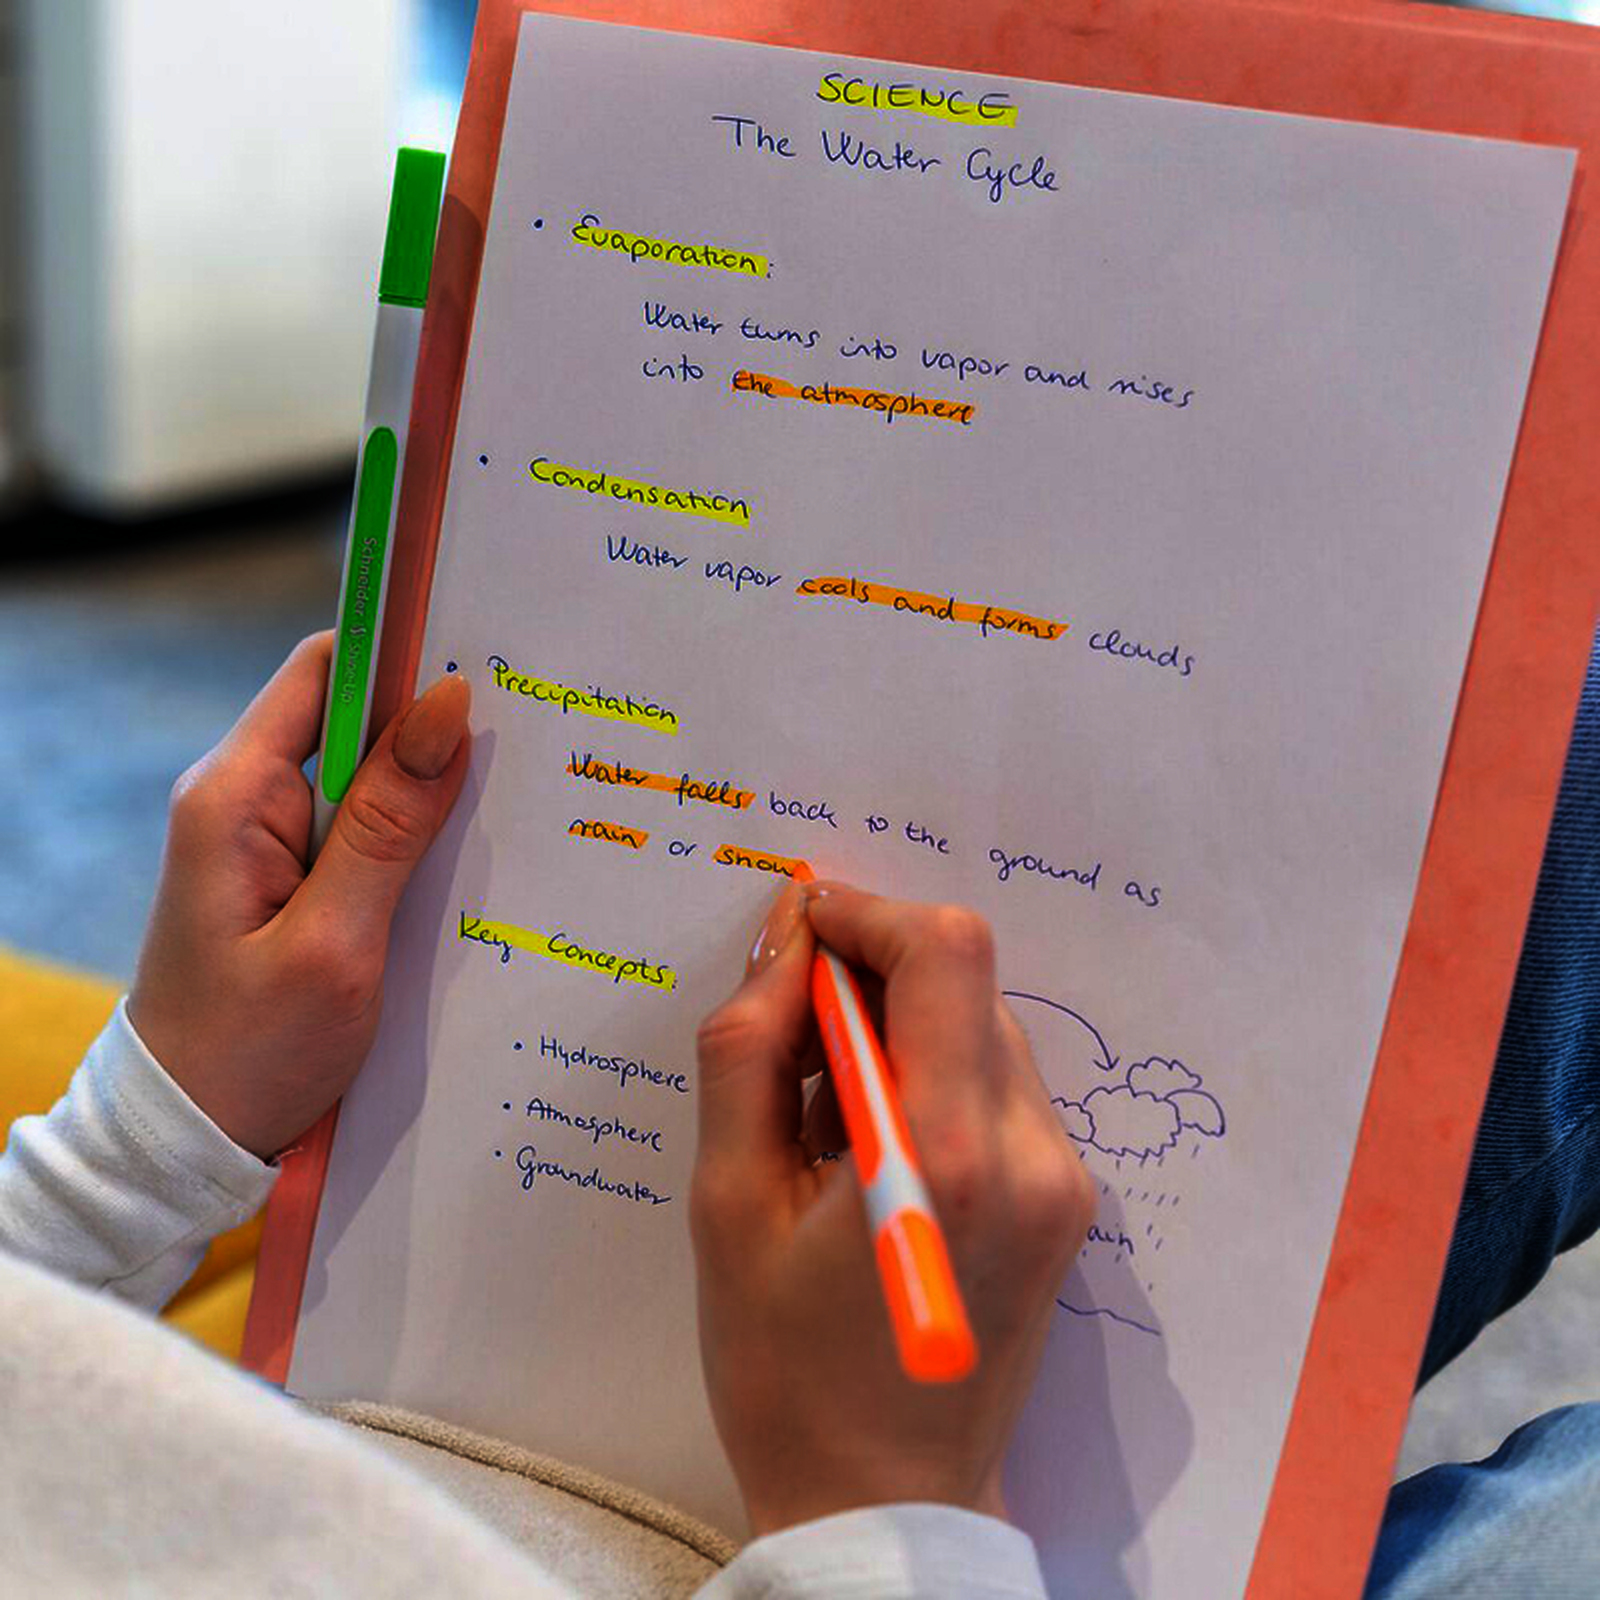 SCIENCE
The Water Cycle
• Evaporation:
Water turns into vapor and rises
into the atmosphere
• Condensation
Water vapor cools and forms clouds
• Precipitation
Water falls back to the ground as
rain or snow
Key Concepts:
• Hydrosphere
• Atmosphere
• Groundwater
ain
Schneider